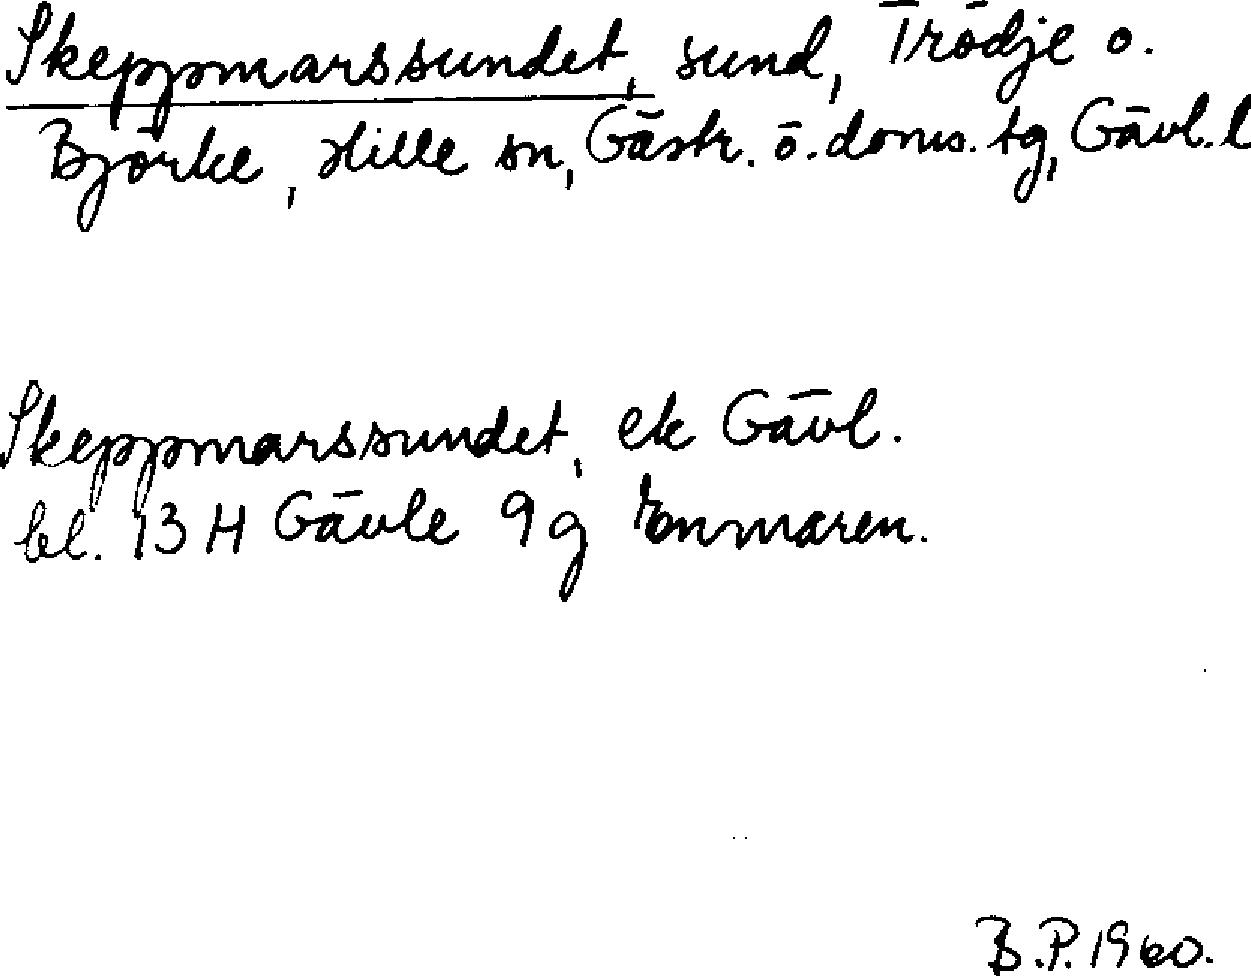 Skeppmarssundet, sund, Trödje o.
Björke, Hille sn, Gästr. ö. doms. tg, Gävl. l
Skeppmarssundet, ek Gävl.
bl. 13 H Gävle 9 g Tonmaren.
B.P. 1960.